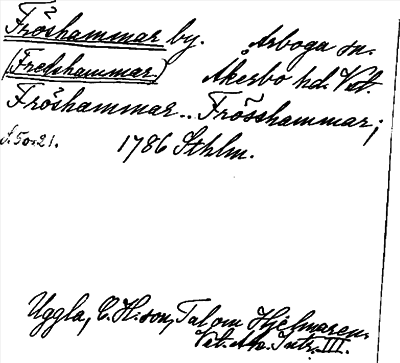 Fröshammar by. Arboga sn.
(Fredshammar) Åkerbo hd. Vstm.
Fröshammar.. Frösshammar;
s. 50, 21. 1786 Sthlm.
Uggla, C. H:son, Tal om Hjelmaren.
Vet. Ak. Intr. III.